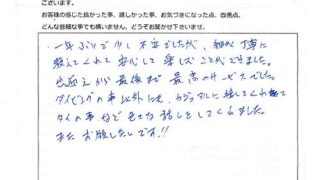 ございます。
お客様の感じた良かった事、嬉しかった事、お気づきになった点、改善点、
どんな些細な事でも構いません、どうぞお聞かせ下さいませ。
一年ぶりで少し不安でしたが、細かく丁寧に
教えてくれて安心して楽しむことができました。
出迎えから最後まで最高のサービスでした。
ダイビングの事以外にも、カジュアルに接してくれ
タイの事など色々な話しをしてくれました。
またお願いしたいです!!